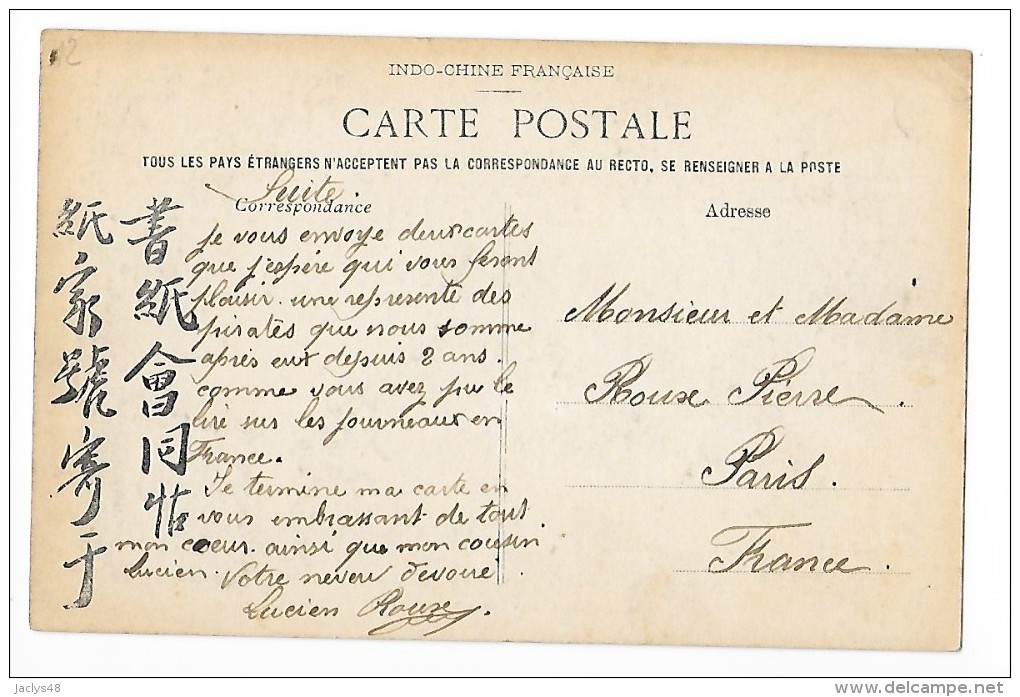 12
INDO-CHINE FRANÇAISE
CARTE POSTALE
TOUS LES PAYS ÉTRANGERS N'ACCEPTENT PAS LA CORRESPONDANCE AU RECTO, SE RENSEIGNER A LA POSTE
Suite.
Correspondance
Je vous envoye deux cartes
que j'espére qui vous feront
plaisir. une represente des
pirates que nous somme
après eux depuis 2 ans.
comme vous avez pu le
lire sur les journeaux en
France.
Je termine ma carte en
vous embrassant de tout
mon coeur. ainsi que mon cousin
Lucien. Votre neveu devoué
Lucien Roux.
Adresse
Monsieur et Madame
Roux Pierre.
Paris.
France.
書紙會同
紙家號寄于
jaclys48
www.delcampe.net